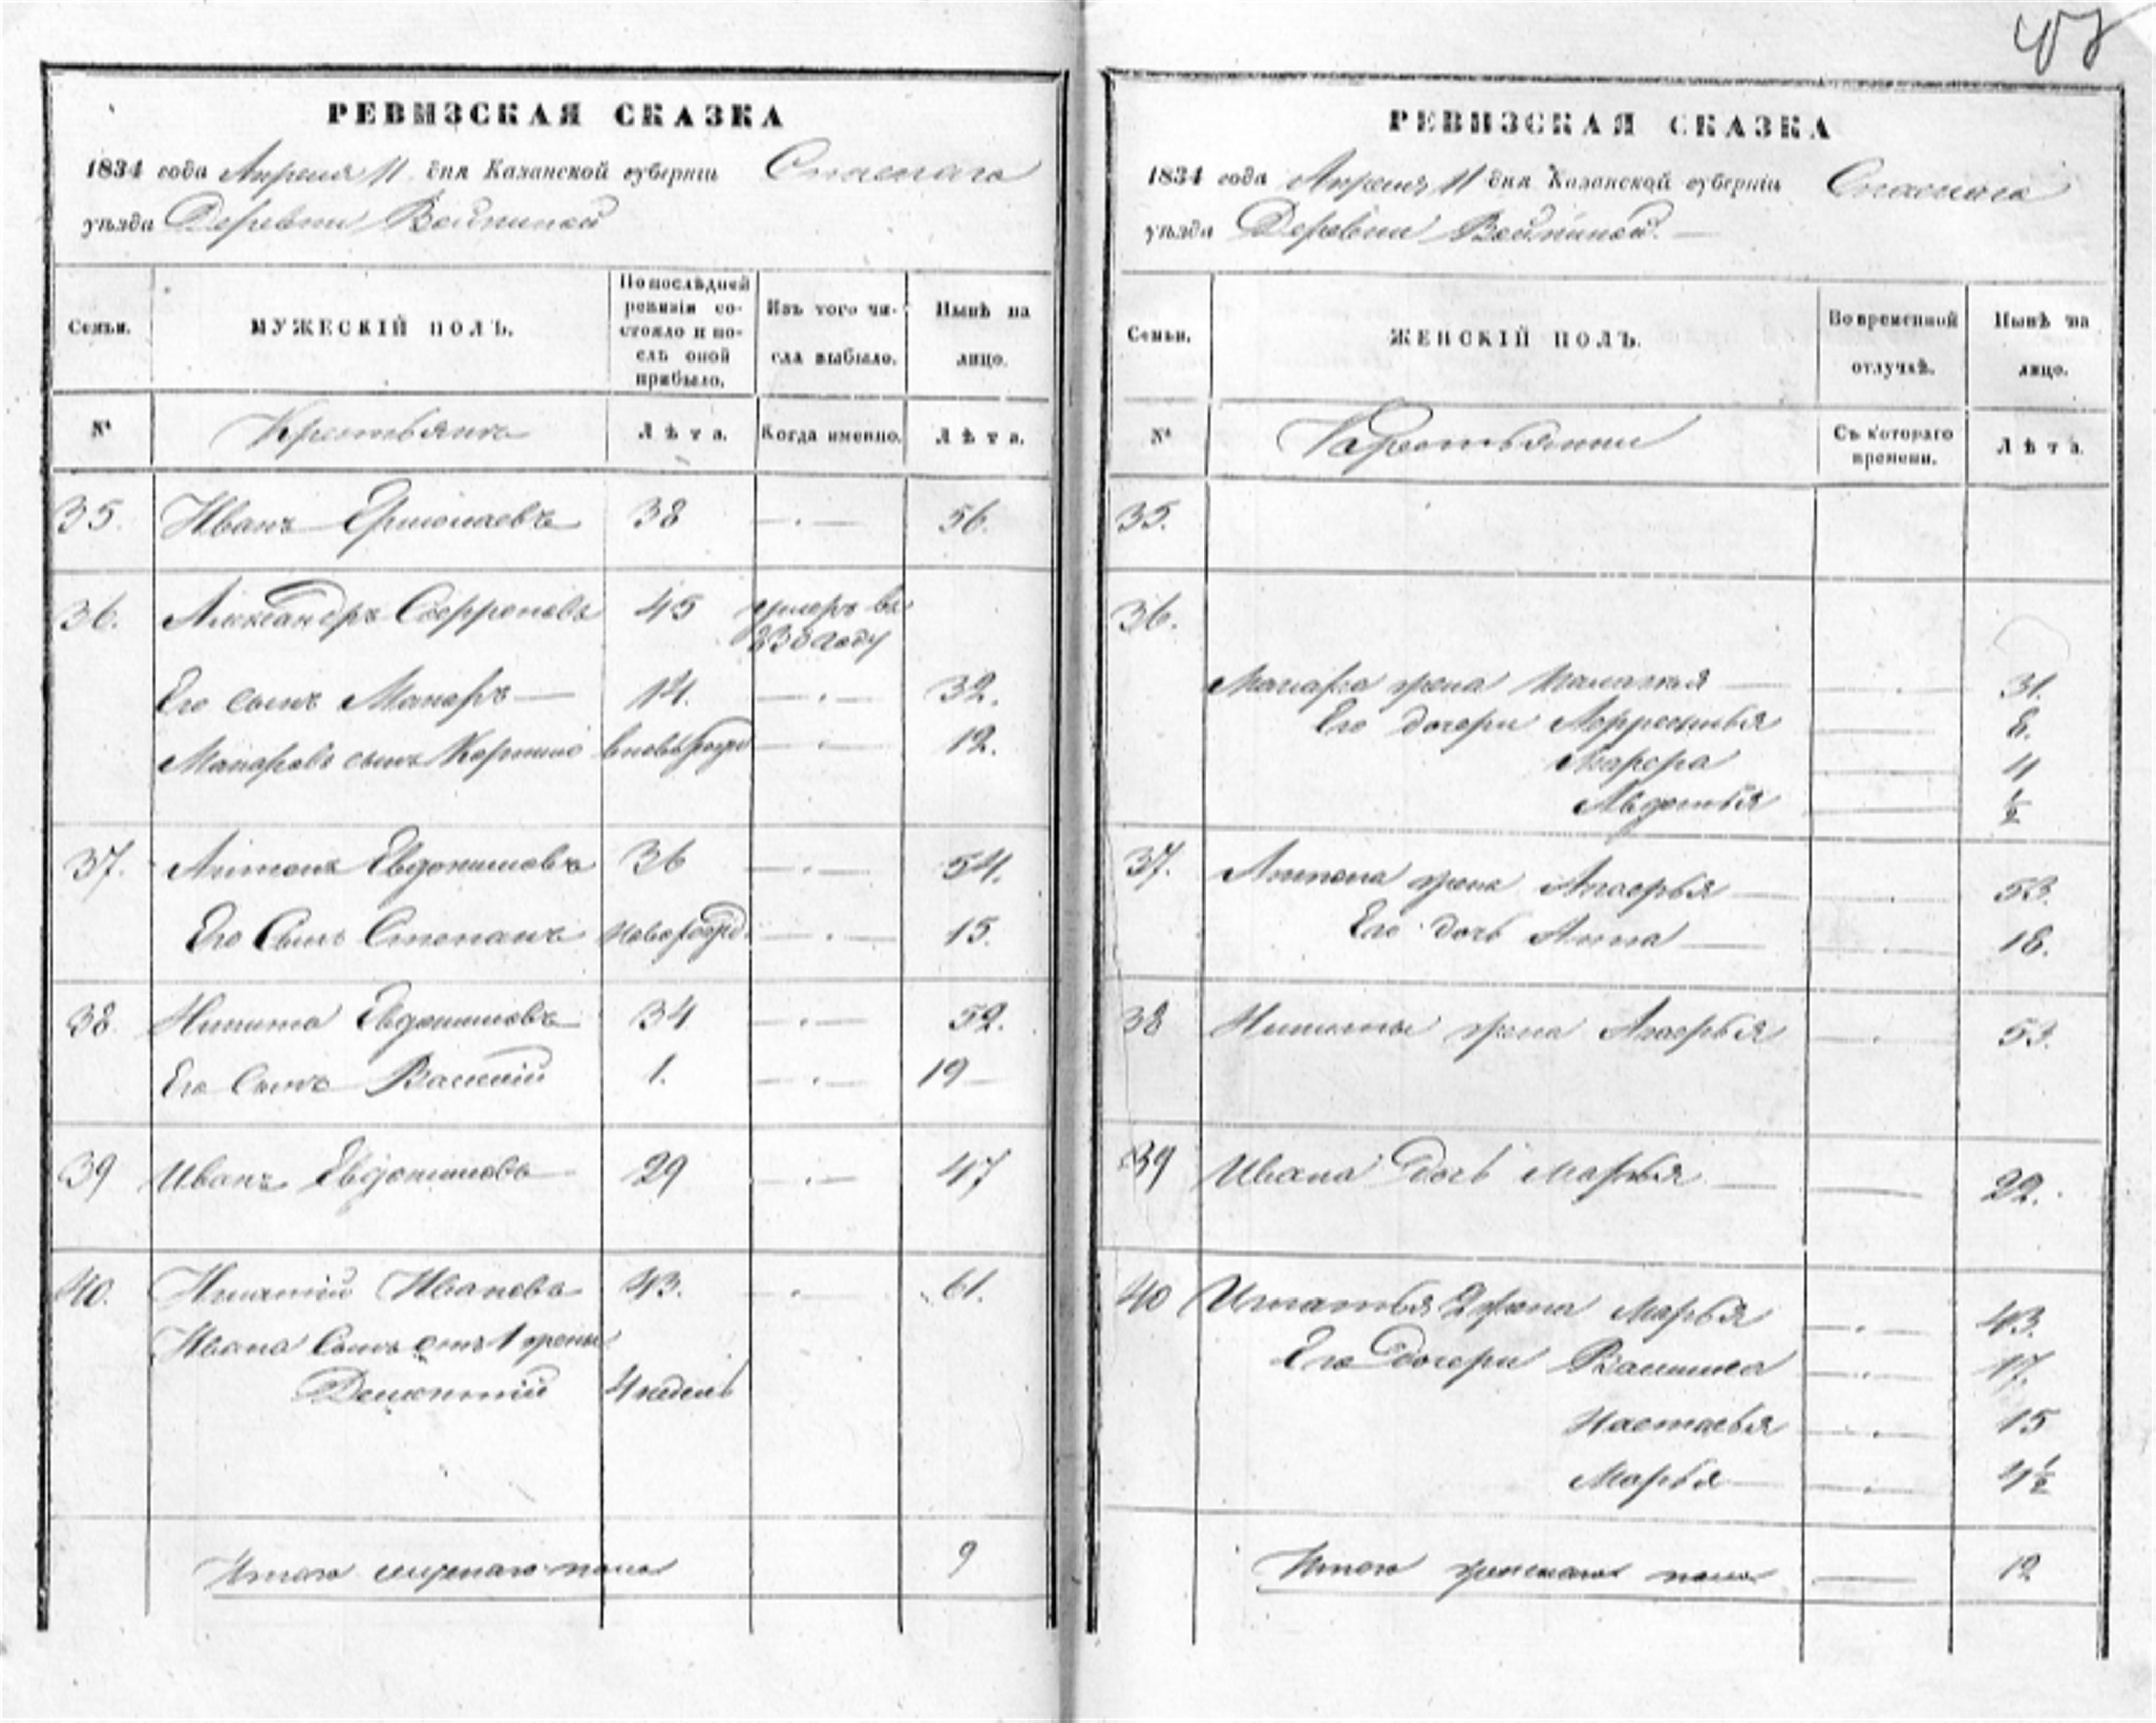 РЕВИЗСКАЯ СКАЗКА
1834 года Апреля 11 дня Казанской губерніи Спаскаго
уѣзда Деревни
Семьи.
МУЖЕСКІЙ ПОЛЪ.
По послѣдней ревизіи состояло и послѣ оной прибыло.
Изъ того числа выбыло.
Нынѣ на лицо.
№
Крестьянъ
Лѣта.
Когда именно.
Лѣта.
35. Иванъ Ермолаевъ 38 56.
36. Александръ 45 умеръ въ
году
Его сынъ Макаръ 14. 32.
Макаровъ сынъ вновьрожд 12.
37. Антонъ Евдокимовъ 36 54.
Его Сынъ Степанъ новорожд. 15.
38. Никита Евдокимовъ 34 52.
Его Сынъ Василій 1. 19
39 Иванъ Евдокимовъ 29 47
40. Игнатій Ивановъ 43. 61.
Ивана Сынъ отъ 1 жены
4 недель
Итого мужеска пола 9
РЕВИЗСКАЯ СКАЗКА
1834 года Апреля 11 дня Казанской губерніи Спаскаго
уѣзда Деревни
Семьи.
ЖЕНСКІЙ ПОЛЪ.
Во временной отлучкѣ.
Нынѣ на лицо.
№
Крестьянки
Съ котораго времени.
Лѣта.
35.
36.
Макара жена Палагея 31.
Его дочери 8.
4
Авдотья ½
37. Антона жена 53.
Его дочь Анна 18.
38 Никиты жена 53.
39 Ивана дочь Марья 22.
40 Игнатья 2 жена Марья 43.
Его дочери Василиса 17.
Настасья 15
Марья
Итого женскаго пола 12